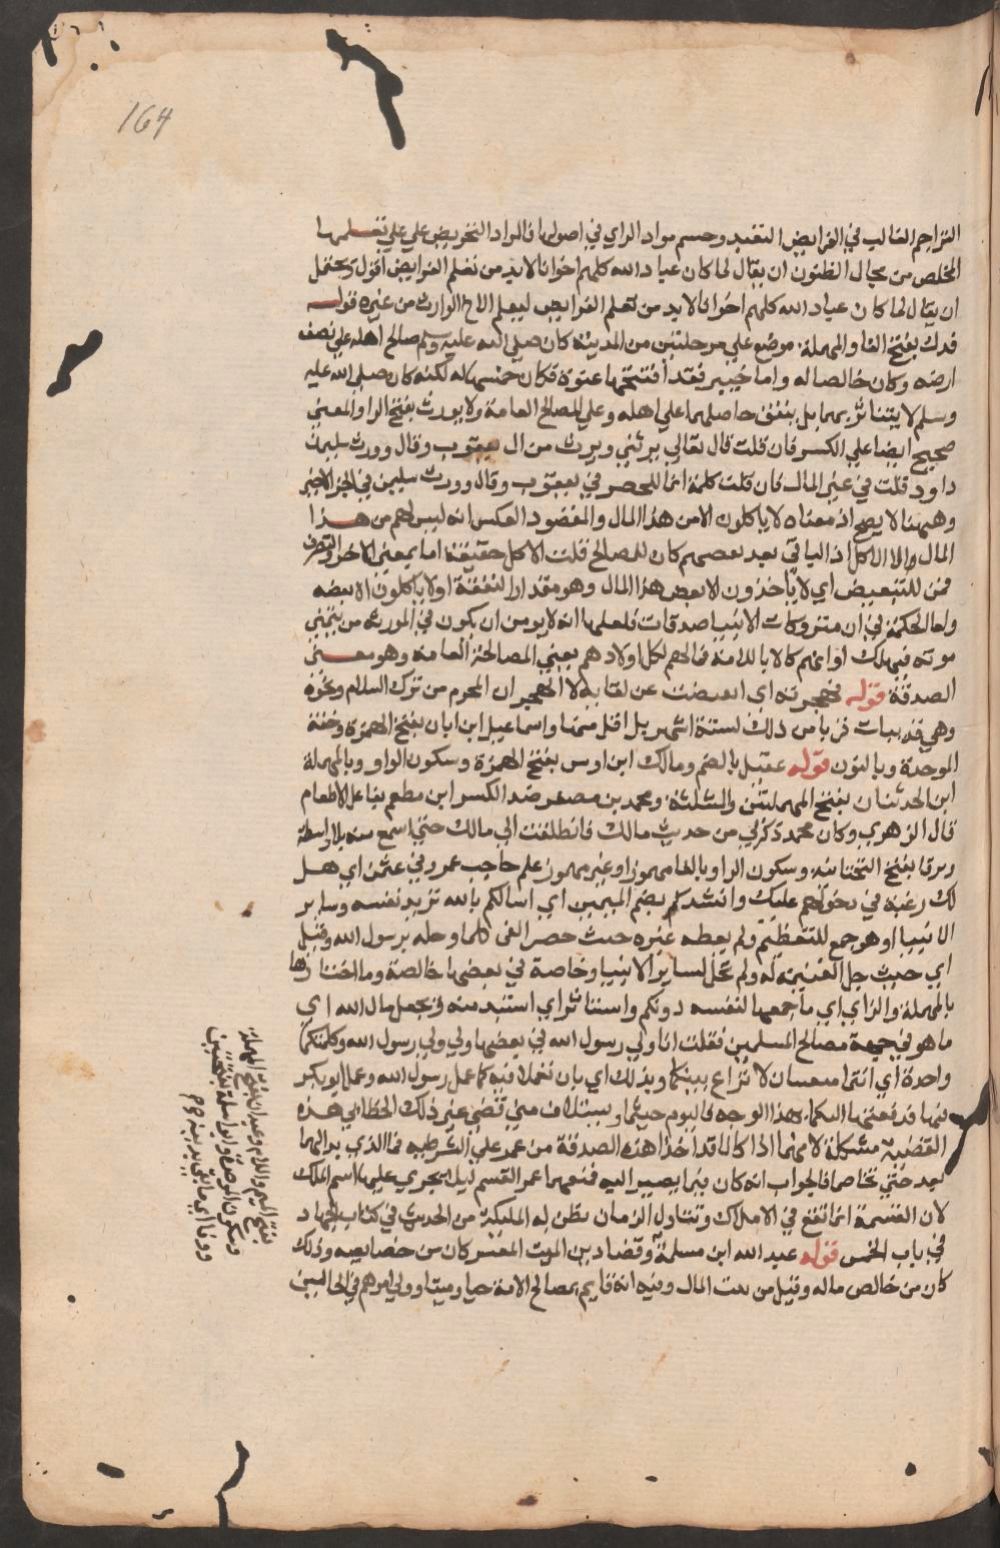 164
التراجم الغالب في الفرايض التعبد وحسم مواد الراي في اصولها فالمراد التحريض علي علي تعلمها
المخلص من مجال الظنون ان يقال لما كان عباد الله كلهم اخوانا لابد من تعلم الفرايض اقول يحتمل
ان يقال لما كان عباد الله كلهم اخوانا لابد من تعلم الفرايض ليعلم الاخ الوارث من غيره قوله
فدك بفتح الفا والمهملة موضع علي مرحلتين من المدينة كان صلي الله عليه وسلم صالح اهله علي نصف
ارضه وكان خالصا له واما خيبر فقد افتتحها عنوة فكان خمسها له لكنه كان صلي الله عليه
وسلم لا يستاثر بهما بل ينفق حاصلهما علي اهله وعلي المصالح العامة ولا يورث بفتح الرا والمعني
صحيح ايضا علي الكسر فان قلت قال تعالي يرثني ويرث من ال يعقوب وقال وورث سليمن
داود قلت في غير المال فان قلت كلمة انما للحصر في يعقوب وقال وورث سليمن في الجزء الاخير
وههنا لا يصح اذ معناه لا ياكلون الا من هذا المال والمقصود العكس انه ليس لهم من هذا
المال الا الاكل اذ الباقي بعد بعضهم كان للمصالح قلت الاكل حقيقة اما بمعني الاخذ والتصرف
فمن للتبعيض اي لا ياخذون الا بعض هذا المال وهو مقدار النفقة او لا ياكلون الا بعضه
ولعل الحكمة في ان متروكات الانبيا صدقات فلعلها انه لا يومن ان يكون في الورثة من يتمني
موته فيهلك او انهم كالاباء للامة فمالهم لكل اولادهم يعني المصالحة العامة وهو معني
الصدقة قوله فهجرته اي انقبضت عن لقايه لا الهجران المحرم من ترك السلام ونحوه
وهي قد ماتت قريبا من ذلك لستة اشهر بل اقل منها واسماعيل ابن ابان بفتح الهمزة وخفة
الموحدة وبالنون قوله عقيل بالضم ومالك ابن اوس بفتح الهمزة وسكون الواو وبالمهملة
ابن الحدثان بفتح المهملتين والمثلثة ومحمد بن مصغر ضد الكسر ابن مطعم بفاعل الاطعام
قال الزهري وكان محمد ذكر لي من حديث مالك فانطلقت الي مالك حتي اسمع منه بلا واسطة
ويرفا بفتح التحتانية وسكون الرا وبالفا مهموز او غير مهموز علم حاجب عمر وفي عثمن اي هل
لك رغبة في دخولهم عليك وانشدكم بضم الشين اي اسالكم بالله نريد نفسه وساير
الانبيا او هو جمع للتعظيم ولم يعطه غيره حيث حصر الفي كله له برسول الله وقيل
اي حيث حل الغنيمة له ولم تحل لساير الانبيا وخاصة في بعضها خالصة وما احتازها
بالمهملة والزاي اي ما جمعها لنفسه دونكم واستاثر اي استبد منه فيجعل مال الله اي
ما هو في جهة مصالح المسلمين فقلت انا ولي رسول الله في بعضها ولي ولي رسول الله وكلمتكما
واحدة اي انتما متفقان لا نزاع بينكما وبذلك اي بان تعملا فيه كما عمل رسول الله وعمل ابو بكر
فيها فدفعتها اليكما بهذا الوجه فاليوم جيتما وسالتماني مني قضي غير ذلك الخطابي هذه
القضية مشكلة لانهما اذا كانا قد اخذا هذه الصدقة من عمر علي الشرطيه فما الذي بدا لهما
بعد حتي تخاصما فالجواب انه كان فيما يصير اليه فمنعهما عمر القسم ليلا يجري عليها اسم الملك
لان القسمة انما تقع في الاملاك وتتناول الزمان يظن له الملكية من الحديث في كتاب الجهاد
في باب الخمس قوله عبد الله ابن مسلمة وقضاء دين الميت المعسر كان من خصايصه وذلك
كان من خالص ماله وقيل من بيت المال وفيه انه قايم بمصالح الامة حيا وميتا وولي امرهم في الحالين
بفتح الميم واللام وعبدان بفتح المهملة
وسكون الموحدة
ووفا اي ما يفي بدينه